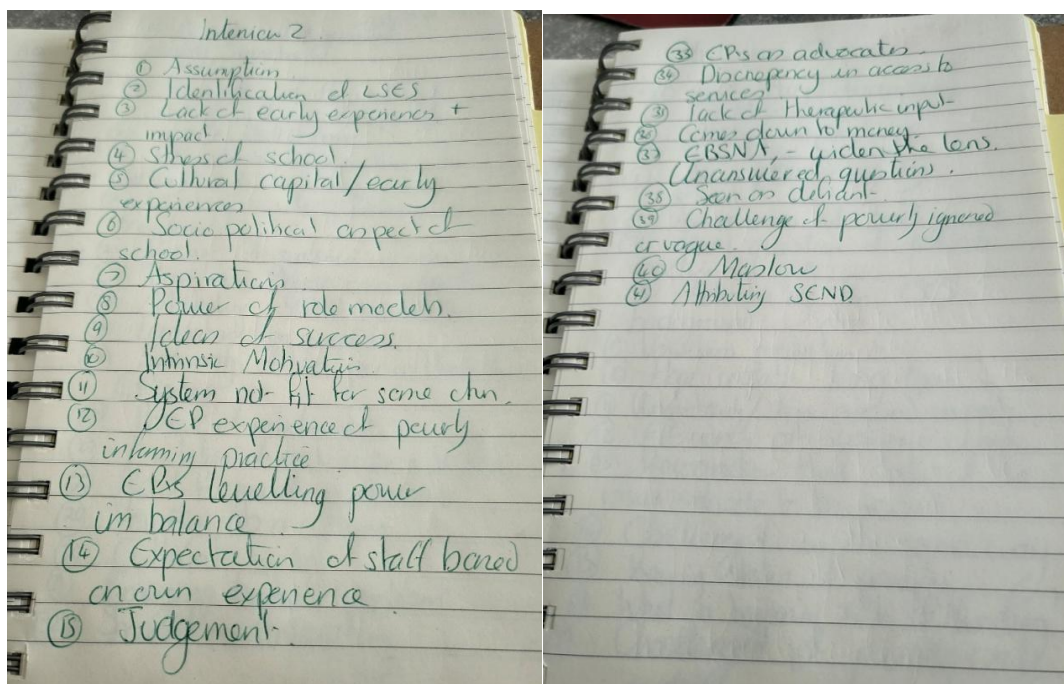 Interview 2
① Assumption
② Identification of LSES
③ Lack of early experiences +
impact
④ Stress of school.
⑤ Cultural capital/early
experiences
⑥ Socio political aspect of
school.
⑦ Aspirations
⑧ Power of role models.
⑨ Ideas of success.
⑩ Intrinsic Motivation
⑪ System not fit for some chn.
⑫ EP experience of poverty
informing practice
⑬ EPs levelling power
imbalance
⑭ Expectation of staff based
on own experience
⑮ Judgement.
EPs as advocates.
㉞ Discrepancy in access to
services
Lack of therapeutic input
Comes down to money.
EBSNA, - widen the lens.
Unanswered questions.
㊳ Seen as defiant
㊴ Challenge of poverty ignored
or vague.
㊵ Maslow
㊶ Attributing SEND